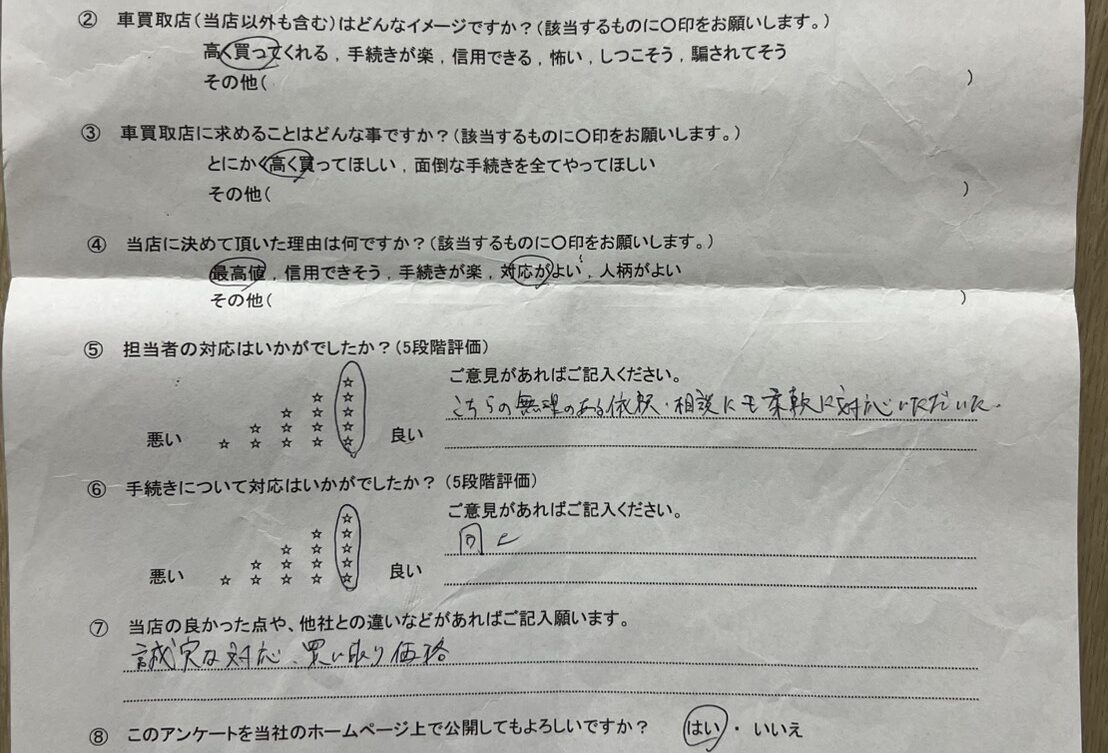 ② 車買取店(当店以外も含む)はどんなイメージですか?(該当するものに〇印をお願いします。)
高く買ってくれる , 手続きが楽 , 信用できる , 怖い , しつこそう , 騙されてそう
その他( )
③ 車買取店に求めることはどんな事ですか?(該当するものに〇印をお願いします。)
とにかく高く買ってほしい , 面倒な手続きを全てやってほしい
その他( )
④ 当店に決めて頂いた理由は何ですか?(該当するものに〇印をお願いします。)
最高値 , 信用できそう , 手続きが楽 , 対応がよい , 人柄がよい
その他( )
⑤ 担当者の対応はいかがでしたか?(5段階評価)
ご意見があればご記入ください。
こちらの無理のある依頼・相談にも柔軟に対応いただいた。
悪い ☆ ☆☆ ☆☆☆ ☆☆☆☆ ☆☆☆☆☆ 良い
⑥ 手続きについて対応はいかがでしたか? (5段階評価)
ご意見があればご記入ください。
同上
悪い ☆ ☆☆ ☆☆☆ ☆☆☆☆ ☆☆☆☆☆ 良い
⑦ 当店の良かった点や、他社との違いなどがあればご記入願います。
誠実な対応、買い取り価格
⑧ このアンケートを当社のホームページ上で公開してもよろしいですか? はい ・ いいえ